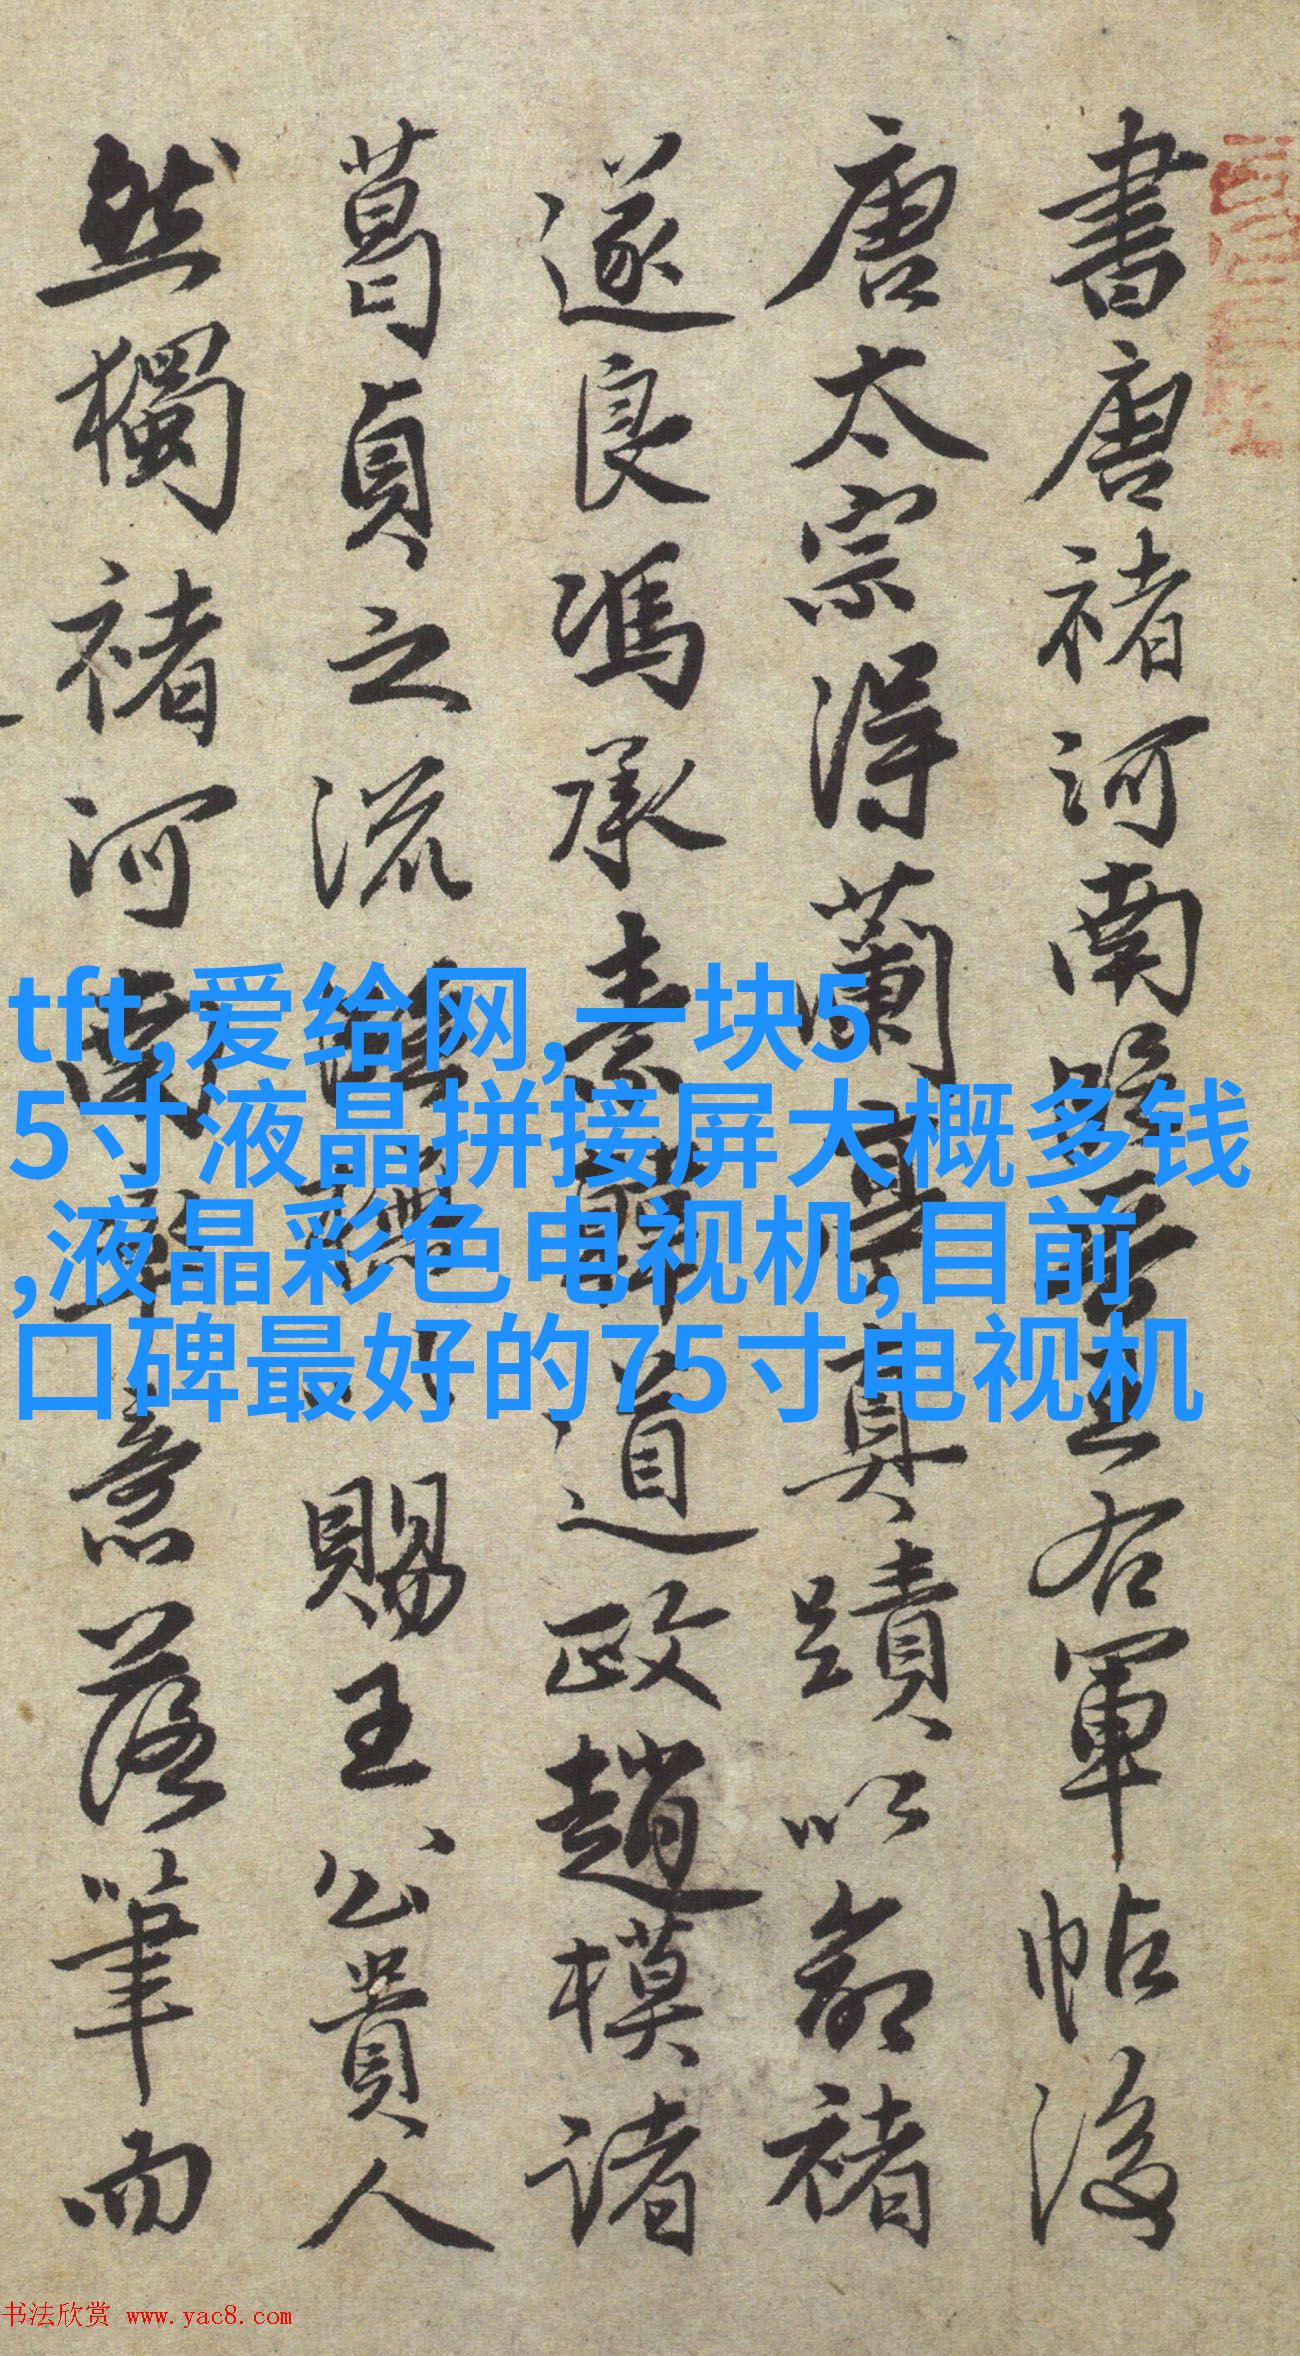 書唐褚河南臨晉王右軍帖後
唐太宗得蘭亭真蹟以命褚
遂良馮承素韓道政趙模諸
葛貞之流賜王公貴人
然獨褚河南意落筆而
tft,爱给网,一块5
5寸液晶拼接屏大概多钱
,液晶彩色电视机,目前
口碑最好的75寸电视机
书法欣赏 www.yac8.com